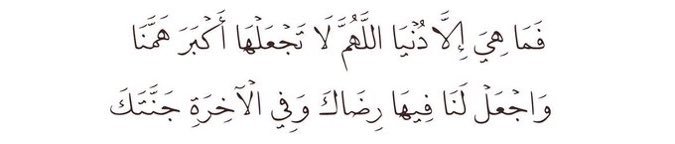 فَمَا هِيَ إِلَّا دُنْيَا اللَّهُمَّ لَا تَجْعَلْهَا أَكْبَرَ هَمَّنَا
وَاجْعَلْ لَنَا فِيهَا رِضَاكَ وَفِي الْآخِرَةِ جَنَّتَكَ